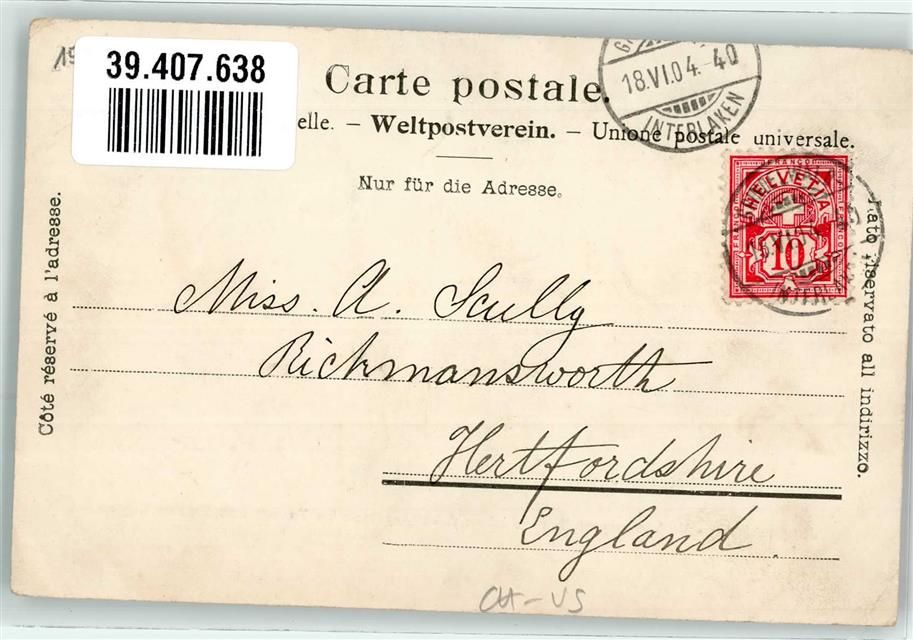 39.407.638
Carte postale.
elle. – Weltpostverein. – Unione postale universale.
Nur für die Adresse.
18.VI.04.-40
INTERLAKEN
FRANCO
HELVETIA
10
Côté réservé à l'adresse.
Lato riservato all indirizzo.
Miss. A. Scully
Rickmansworth
Hertfordshire
England
CH-VS